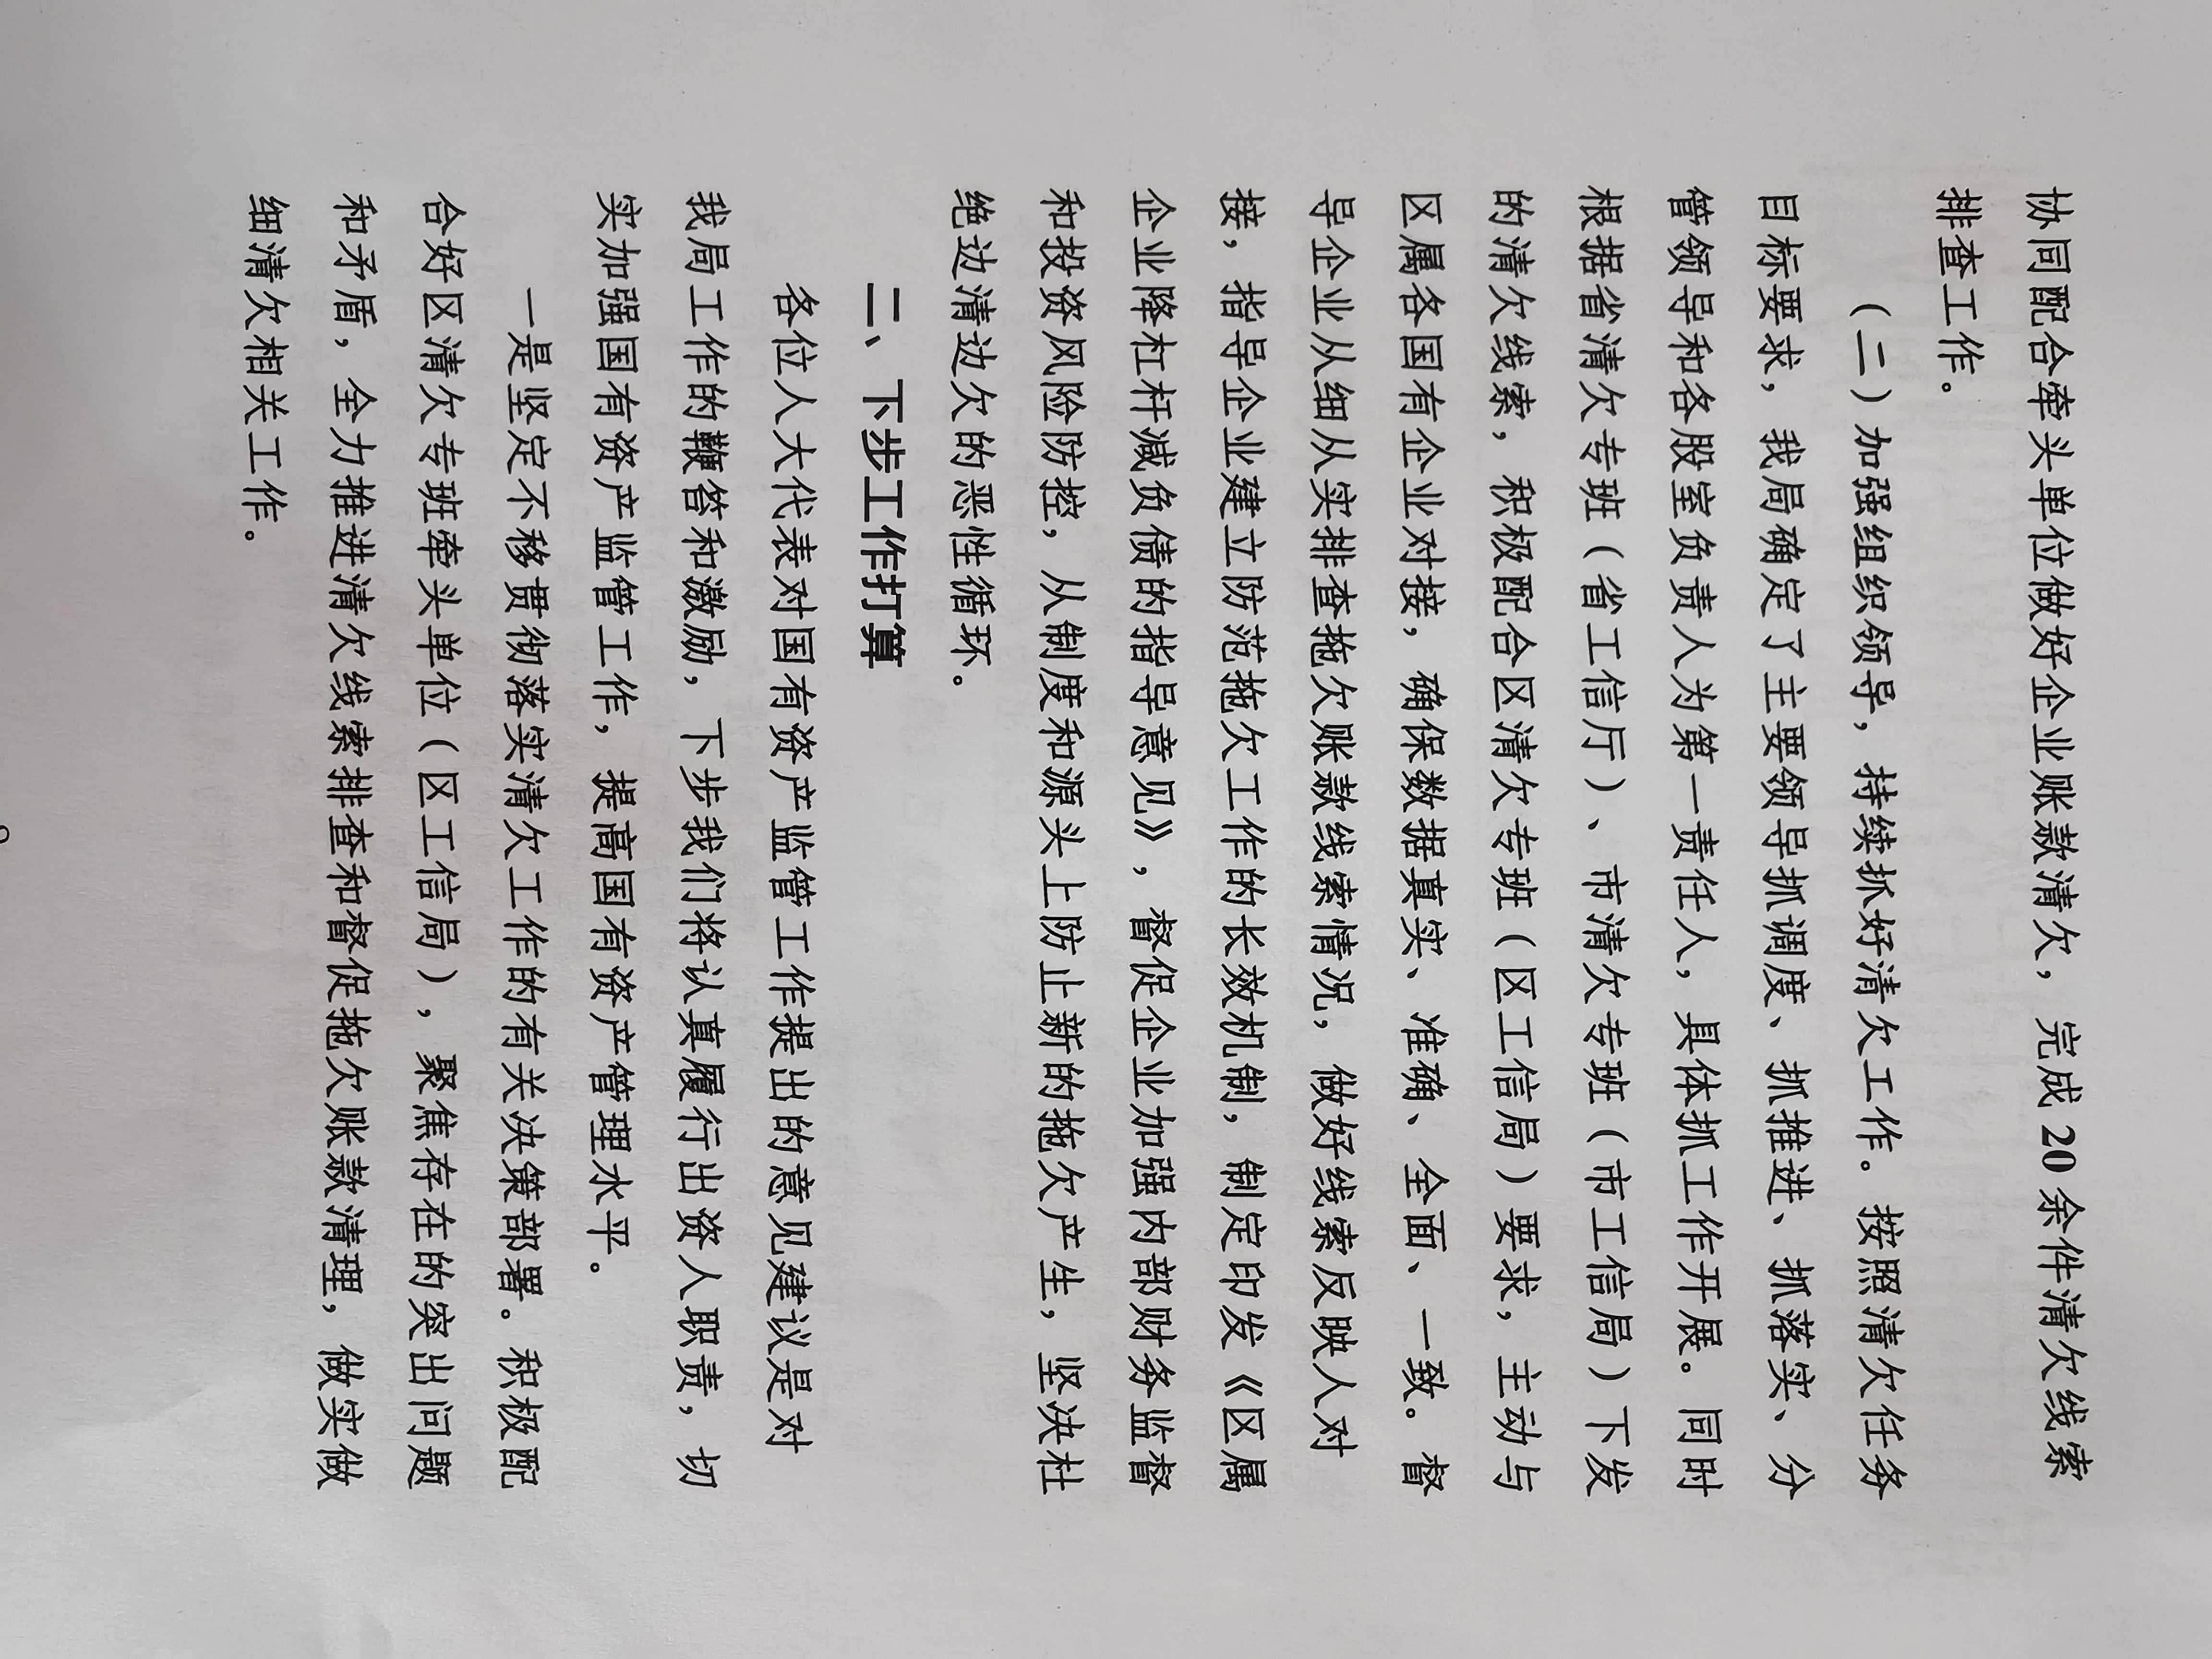 协同配合牵头单位做好企业账款清欠，完成 20 余件清欠线索
排查工作。
（二）加强组织领导，持续抓好清欠工作。按照清欠任务
目标要求，我局确定了主要领导抓调度、抓推进、抓落实、分
管领导和各股室负责人为第一责任人，具体抓工作开展。同时
根据省清欠专班（省工信厅）、市清欠专班（市工信局）下发
的清欠线索，积极配合区清欠专班（区工信局）要求，主动与
区属各国有企业对接，确保数据真实、准确、全面、一致。督
导企业从细从实排查拖欠账款线索情况，做好线索反映人对
接，指导企业建立防范拖欠工作的长效机制，制定印发《区属
企业降杠杆减负债的指导意见》，督促企业加强内部财务监督
和投资风险防控，从制度和源头上防止新的拖欠产生，坚决杜
绝边清边欠的恶性循环。
二、下步工作打算
各位人大代表对国有资产监管工作提出的意见建议是对
我局工作的鞭答和激励，下步我们将认真履行出资人职责，切
实加强国有资产监管工作，提高国有资产管理水平。
一是坚定不移贯彻落实清欠工作的有关决策部署。积极配
合好区清欠专班牵头单位（区工信局），聚焦存在的突出问题
和矛盾，全力推进清欠线索排查和督促拖欠账款清理，做实做
细清欠相关工作。